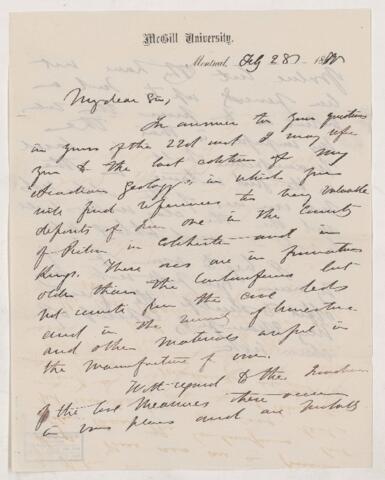 McGill University.
Montreal, Feby 28 18
My dear Sir,
In answer to your questions
in yours of the 22d inst I may refer
you to the last edition of my
Acadian Geology, in which you
will find references to very valuable
deposits of Iron ore in the County
of Pictou in Colchester and in
Kings. These ores are in formations
older than the Carboniferous but
not remote from the coal beds
and in the vicinity of limestone
and other materials useful in
the manufacture of iron.
With regard to the
of the Coal Measures these occur
in many places and are